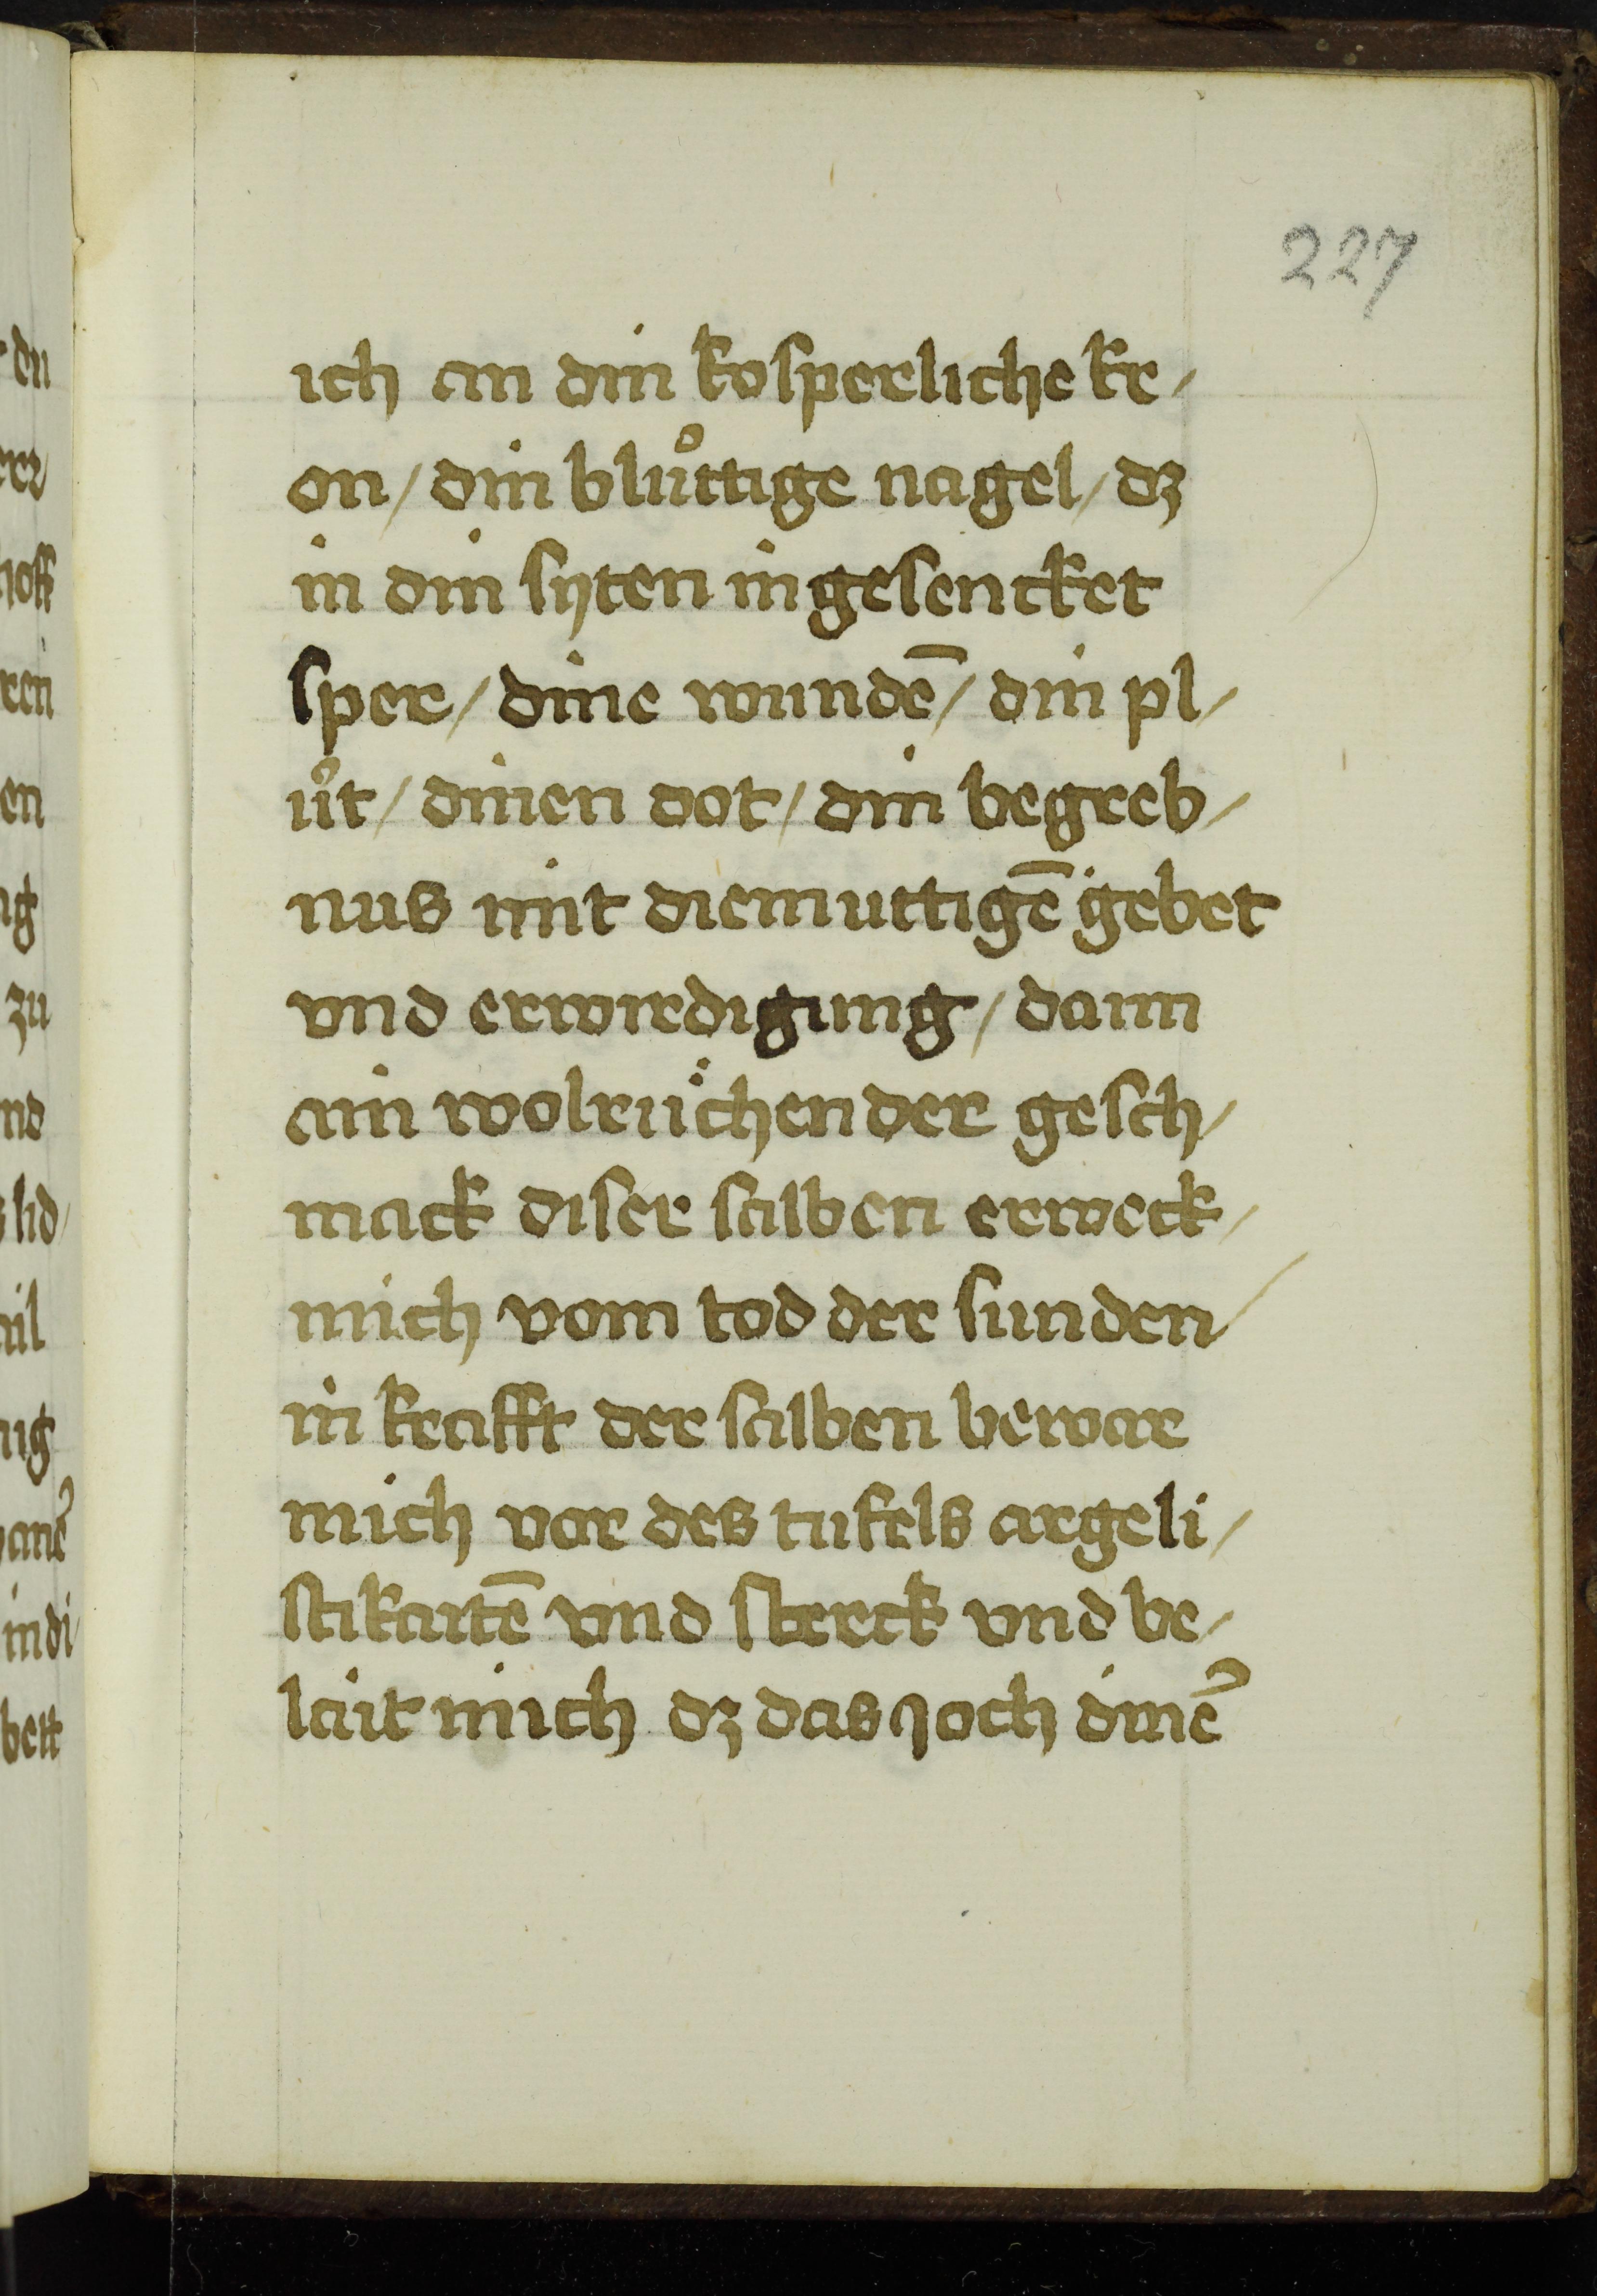 227
ich an din kosperliche kr/
on/ din bluͦttige nagel/ dz
in din syten ingesencket
sper/ dine wundē/ din pl/
uͦt/ dinen dot/ din begreb/
nus mit diemuttigē gebet
vnd erwirdigung/ dann
ain wolruͤchender gesch/
mack diser salben erweck/
mich vom tod der sunden/
in krafft der salben bewar
mich vor des tufels argeli/
stikaitē vnd sterck vnd be/
lait mich dz das Joch dineˀ